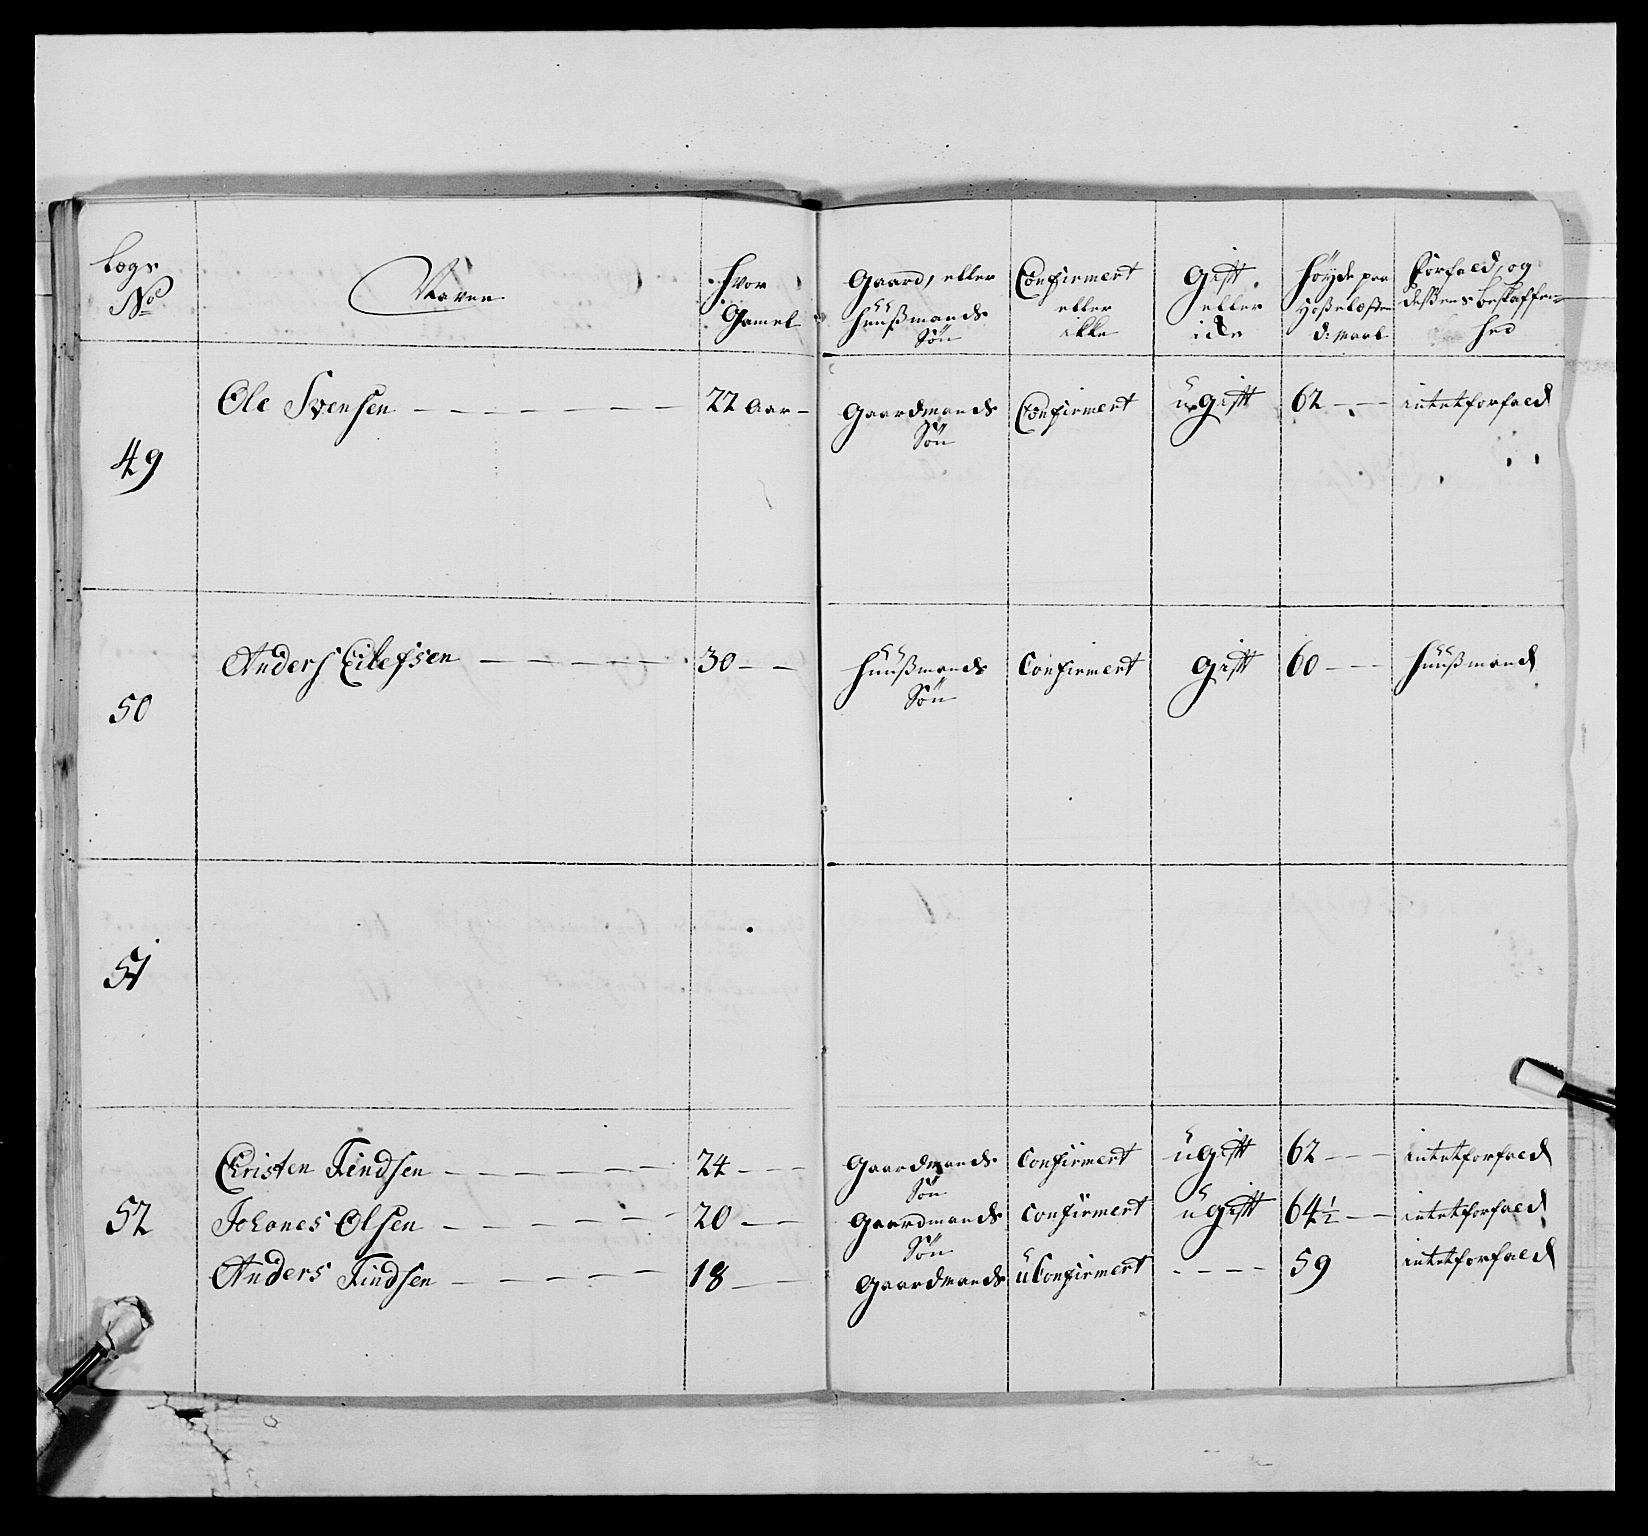 Lægs No Navne hvor Gamel Gaard, eller Huusmands Søn Confirmert eller ikke Gift eller icke Høyde paa Hosseløsten d: Maal Forfald, og deßens beskaffenhed
49 Ole Svensen 22 Aar Gaardmands Søn Confirmert ugift 62 intet forfald
50 Anders Eilefsen 30 Huußmands Søn Confirmert gift 60 Huußmand
51
52 Christen Findsen 24 Gaardmands Søn Confirmert ugift 62 intet forfald
Johanes Olsen 20 Gaardmands Søn Confirmert ugift 64 1/2 intet forfald
Anders Findsen 18 Gaardmands uConfirmert 59 intet forfald